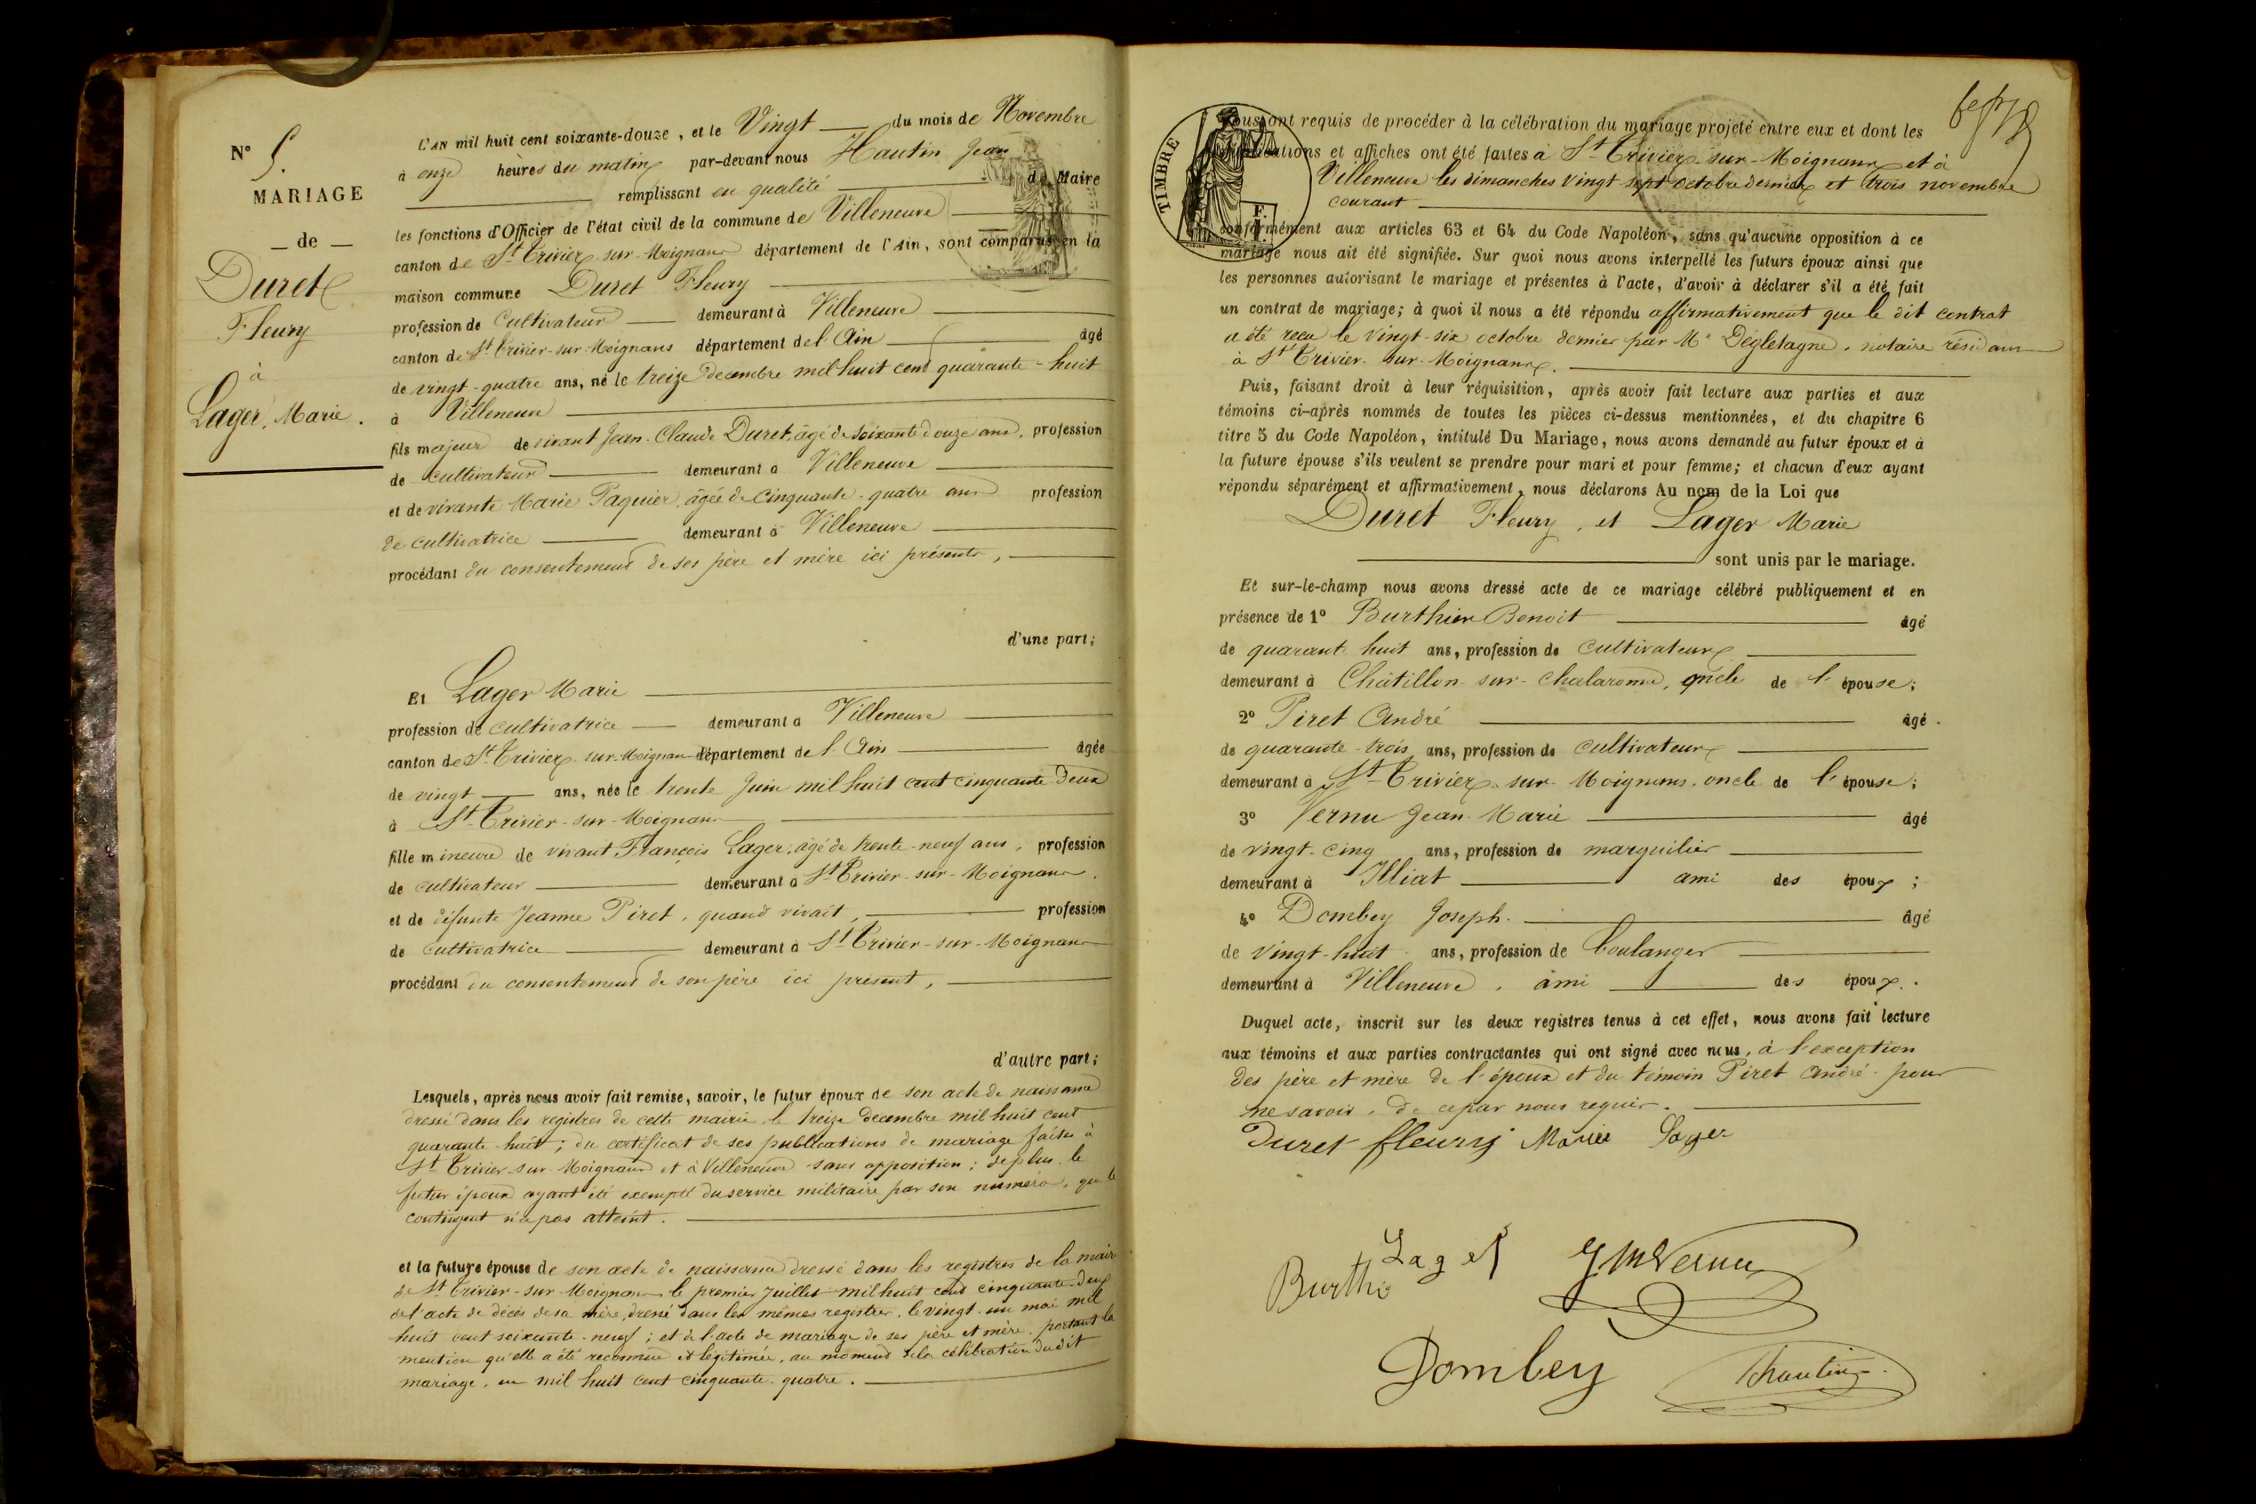 N° 5.
MARIAGE
— de —
Duret
Fleury
à
Lager, Marie.
L'AN mil huit cent soixante-douze, et le Vingt du mois de Novembre
à onze heures du matin par-devant nous Hautin Jean
remplissant en qualité de Maire
les fonctions d'Officier de l'état civil de la commune de Villeneuve
canton de St Trivier-sur-Moignans département de l'Ain, sont comparus en la
maison commune Duret Fleury
profession de cultivateur demeurant à Villeneuve
canton de St Trivier-sur-Moignans département de l'Ain âgé
de vingt-quatre ans, né le treize décembre mil huit cent quarante-huit
à Villeneuve
fils majeur de vivant Jean-Claude Duret, âgé de soixante douze ans, profession
de cultivateur demeurant à Villeneuve
et de vivante Marie Paquier, âgée de cinquante-quatre ans profession
de cultivatrice demeurant à Villeneuve
procédant du consentement de ses père et mère ici présents,
d'une part;
Et Lager Marie
profession de cultivatrice demeurant à Villeneuve
canton de St Trivier-sur-Moignans département de l'Ain âgée
de vingt ans, née le trente Juin mil huit cent cinquante deux
à St Trivier-sur-Moignans
fille mineure de vivant François Lager, âgé de trente-neuf ans, profession
de cultivateur demeurant à St Trivier-sur-Moignans.
et de défunte Jeanne Piret, quand vivait, profession
de cultivatrice demeurant à St Trivier-sur-Moignans
procédant du consentement de son père ici présent,
d'autre part;
Lesquels, après nous avoir fait remise, savoir, le futur époux de son acte de naissance
dressé dans les registres de cette mairie le treize décembre mil huit cent
quarante-huit; du certificat de ses publications de mariage faites à
St Trivier-sur-Moignans et à Villeneuve sans opposition; de plus le
futur époux ayant été exempté du service militaire par son numéro, que le
contingent n'a pas atteint.
et la future épouse de son acte de naissance dressé dans les registres de la mairie
de St Trivier-sur-Moignans le premier Juillet mil huit cent cinquante-deux
de l'acte de décès de sa mère, dressé dans les mêmes registres, le vingt-un mai mil
huit cent soixante-neuf; et de l'acte de mariage de ses père et mère, portant la
mention qu'elle a été reconnue et légitimée, au moment de la célébration du dit
mariage, en mil huit cent cinquante-quatre.
TIMBRE
F.
Nous ont requis de procéder à la célébration du mariage projeté entre eux et dont les
publications et affiches ont été faites à St Trivier-sur-Moignans et à
Villeneuve les dimanches vingt-sept octobre dernier et trois novembre
courant
conformément aux articles 63 et 64 du Code Napoléon, sans qu'aucune opposition à ce
mariage nous ait été signifiée. Sur quoi nous avons interpellé les futurs époux ainsi que
les personnes autorisant le mariage et présentes à l'acte, d'avoir à déclarer s'il a été fait
un contrat de mariage; à quoi il nous a été répondu affirmativement que le dit contrat
a été reçu le vingt-six octobre dernier par Me Dégletagne, notaire résidant
à St Trivier-sur-Moignans.
Puis, faisant droit à leur réquisition, après avoir fait lecture aux parties et aux
témoins ci-après nommés de toutes les pièces ci-dessus mentionnées, et du chapitre 6
titre 5 du Code Napoléon, intitulé Du Mariage, nous avons demandé au futur époux et à
la future épouse s'ils veulent se prendre pour mari et pour femme; et chacun d'eux ayant
répondu séparément et affirmativement, nous déclarons Au nom de la Loi que
Duret Fleury, et Lager Marie
sont unis par le mariage.
Et sur-le-champ nous avons dressé acte de ce mariage célébré publiquement et en
présence de 1° Burthier Benoit âgé
de quarante huit ans, profession de cultivateur
demeurant à Châtillon-sur-Chalaronne, oncle de l'épouse;
2° Piret André âgé
de quarante-trois ans, profession de cultivateur
demeurant à St Trivier-sur-Moignans, oncle de l'épouse;
3° Vernu Jean-Marie âgé
de vingt-cinq ans, profession de marguilier
demeurant à Illiat ami des époux;
4° Dombey Joseph. âgé
de vingt-huit ans, profession de boulanger
demeurant à Villeneuve, ami des époux.
Duquel acte, inscrit sur les deux registres tenus à cet effet, nous avons fait lecture
aux témoins et aux parties contractantes qui ont signé avec nous, à l'exception
des père et mère de l'époux et du témoin Piret André pour
ne savoir, de ce par nous requis.
Duret fleury Marie Lager
Lager JM Vernu
Burthie
Dombey Jhautin